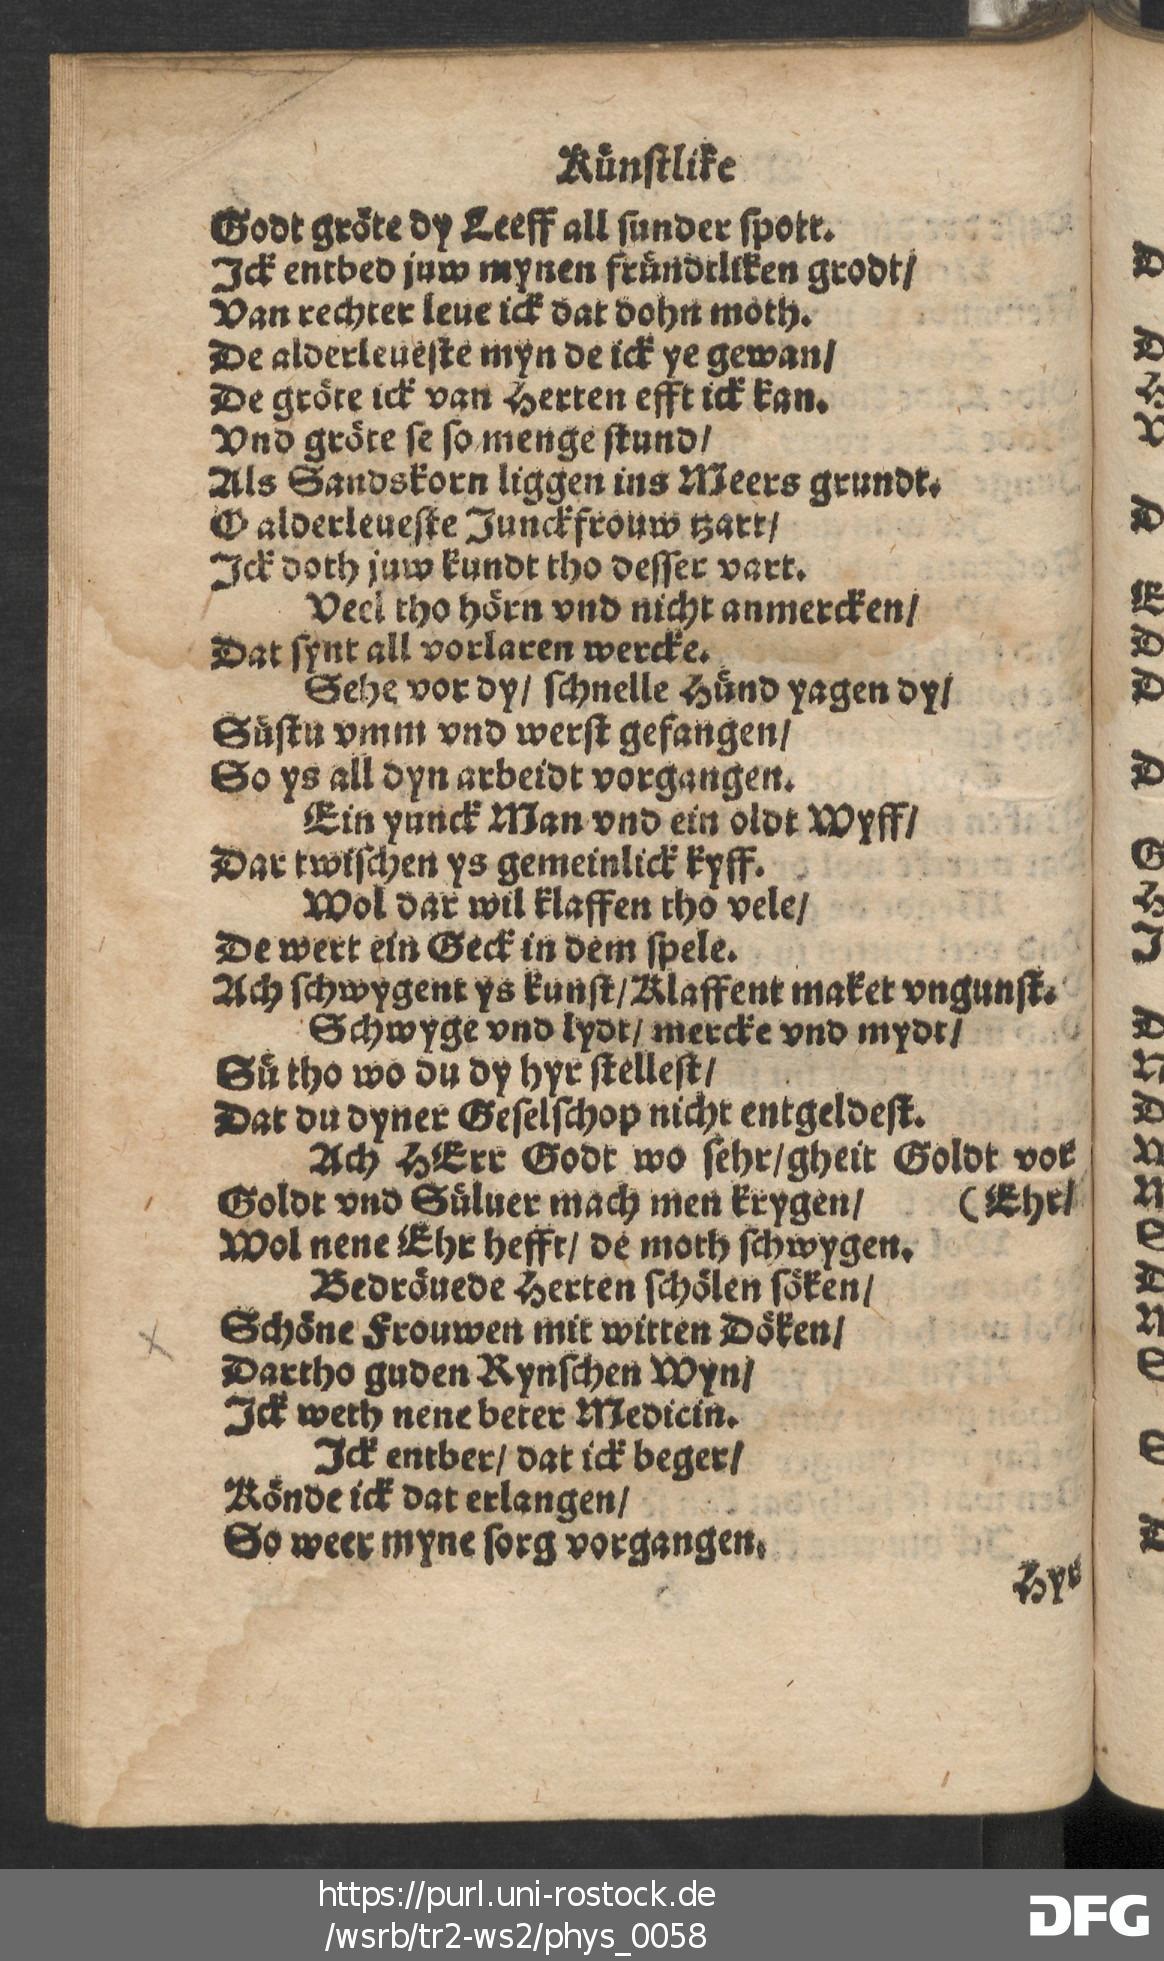 Künstlike
Godt gröte dy Leeff all sunder spott.
Ick entbed juw mynen fründtliken grodt/
Van rechter leue ick dat dohn moth.
De alderleueste myn de ick ye gewan/
De gröte ick van Herten efft ick kan.
Vnd gröte se so menge stund/
Als Sandskorn liggen ins Meers grundt.
O alderleueste Junckfrouw tzart/
Ick doth juw kundt tho desser vart.
Veel tho hörn vnd nicht anmercken/
Dat synt all vorlaren wercke.
Sehe vor dy/ schnelle Hünd yagen dy/
Süstu vmm vnd werst gefangen/
So ys all dyn arbeidt vorgangen.
Ein yunck Man vnd ein oldt Wyff/
Dar twischen ys gemeinlick kyff.
Wol dar wil klaffen tho vele/
De wert ein Geck in dem spele.
Ach schwygent ys kunst/Klaffent maket vngunst.
Schwyge vnd lydt/ mercke vnd mydt/
Sü tho wo du dy hyr stellest/
Dat du dyner Geselschop nicht entgeldest.
Ach HErr Godt wo sehr/gheit Goldt vor
Goldt vnd Süluer mach men krygen/ (Ehr/
Wol nene Ehr hefft/ de moth schwygen.
Bedröuede Herten schölen söken/
Schöne Frouwen mit witten Döken/
Dartho guden Rynschen Wyn/
Ick weth nene beter Medicin.
Ick entber/ dat ick beger/
Könde ick dat erlangen/
So weer myne sorg vorgangen.
Hyr
https://purl.uni-rostock.de
/wsrb/tr2-ws2/phys_0058
DFG